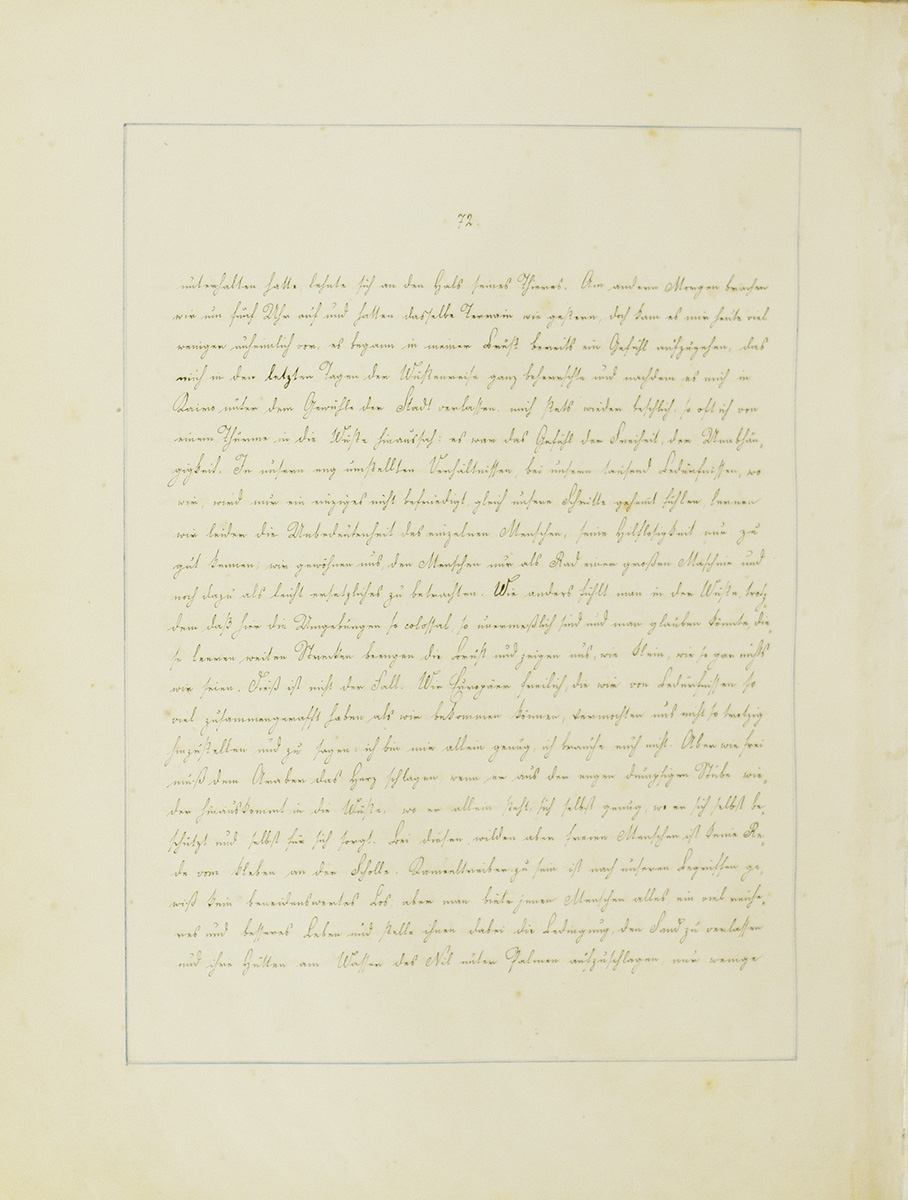 72.
unterhalten hatte, lehnte sich an den Hals seines Thieres. Am andern Morgen brachen
wir um fünf Uhr auf und hatten dasselbe Terrain wie gestern, doch kam es mir heute viel
weniger unheimlich vor; es begann in meiner Brust bereits ein Gefühl aufzugehen, das
mich in den letzten Tagen der Wüstenreise ganz beherrschte und nachdem es mich in
Kairo unter dem Gewühle der Stadt verlassen, mich stets wieder beschlich, so oft ich von
einem Thurme in die Wüste hinaussah: es war das Gefühl der Freiheit, der Unabhän-
gigkeit. In unsern eng umstellten Verhältnissen bei unsern tausend Bedürfnissen, wo
wir, wird nur ein einziges nicht befriedigt, gleich unsere Schritte gehemt fühlen, lernen
wir leider die Unbedeutenheit des einzelnen Menschen, seine Hilflosigkeit nur zu
gut kennen; wir gewöhnen uns, den Menschen nur als Rad einer großen Maschine und
noch dazu als leicht ersetzliches zu betrachten. Wie anders fühlt man in der Wüste, trotz-
dem daß hier die Umgebungen so colossal, so unermeßlich sind und man glauben könnte, die-
se leeren weiten Strecken beengen die Brust und zeigen uns, wie klein, wie so gar nichts
wir seien. Dieß ist nicht der Fall. Wir Europäer freilich, die wir von Bedürfnissen so
viel zusammengerafft haben als wir bekommen können, vermochten uns nicht so trotzig
hinzustellen und zu sagen: ich bin mir allein genug, ich brauche euch nicht. Aber wie frei
muß dem Araber das Herz schlagen wenn er aus der engen dumpfigen Stube wie-
der hinauskommt in die Wüste, wo er allein steht, sich selbst genug, wo er sich selbst be-
schützt und selbst für sich sorgt. Bei diesen wilden aber freien Menschen ist keine Re-
de vom Kleben an der Scholle. Kameeltreiber zu sein ist nach unseren Begriffen ge-
wiß kein beneidenswertes Los aber man biete jenen Menschen alles, ein viel reiche-
res und besseres Leben und stelle ihnen dabei die Bedingung den Sand zu verlassen
und ihre Hütten am Wasser des Nil unter Palmen aufzuschlagen, nur wenige